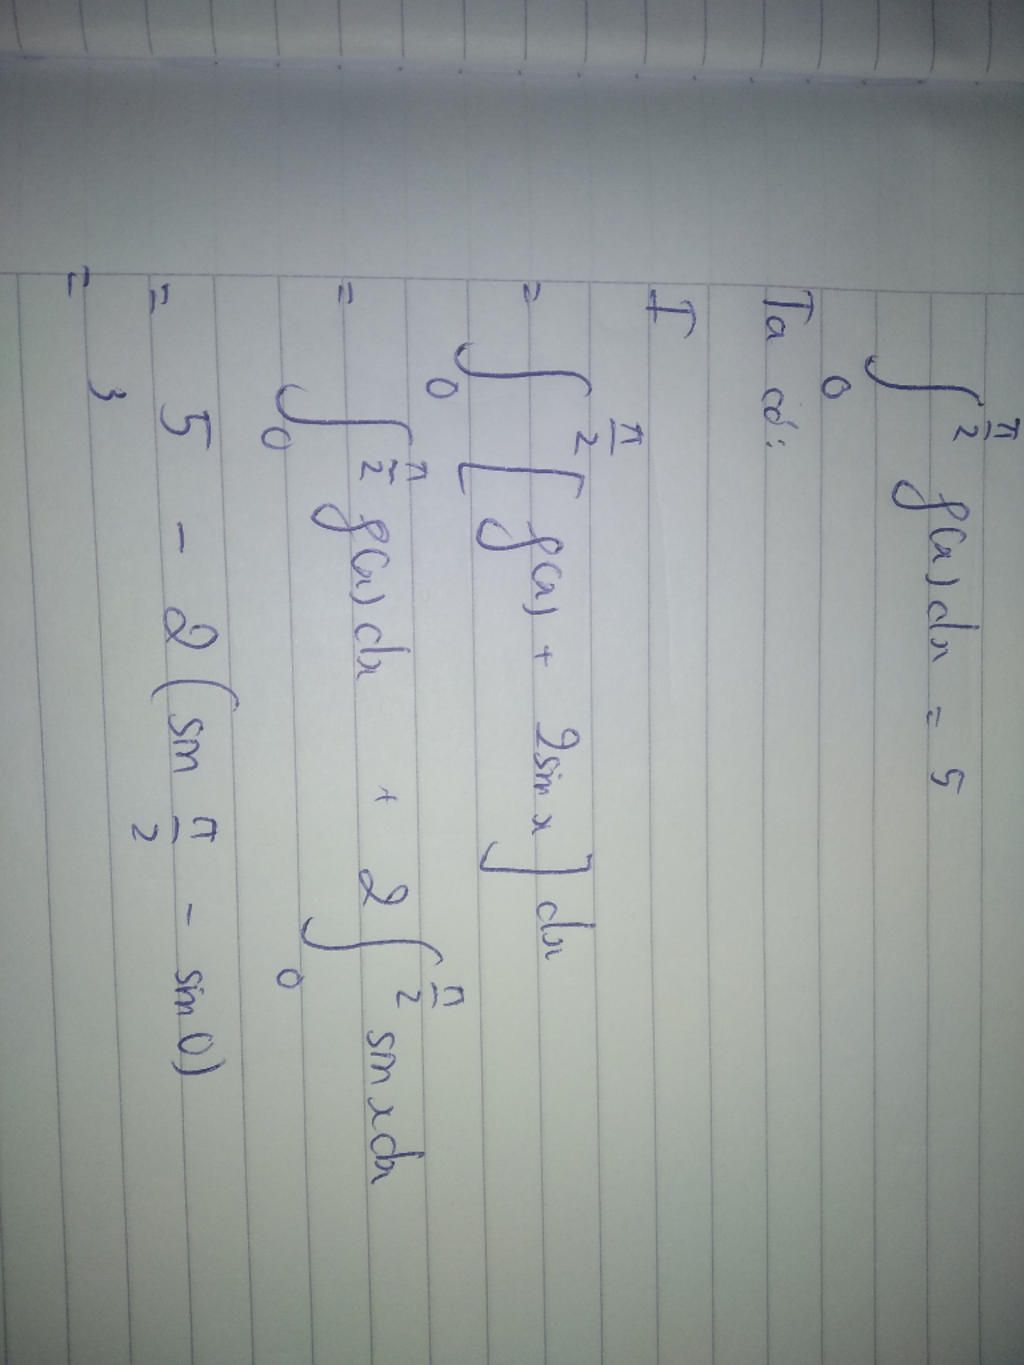 ∫₀^(π/2) f(x)dx = 5
Ta có:
I
= ∫₀^(π/2) [f(x) + 2sin x] dx
= ∫₀^(π/2) f(x)dx + 2∫₀^(π/2) sin xdx
= 5 - 2(sin π/2 - sin 0)
= 3